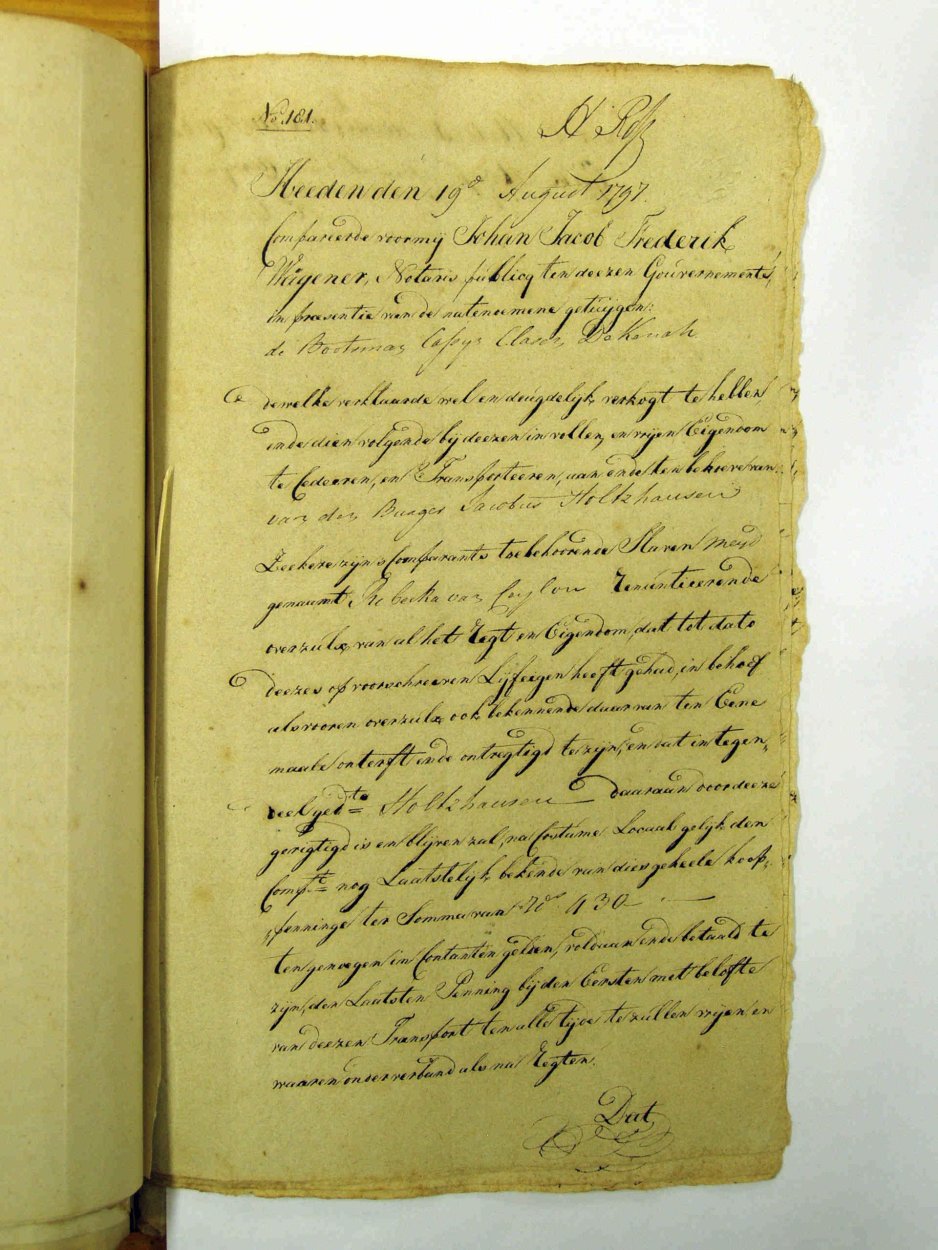 No. 181.
Heeden den 19e August 1797.
Compareerde voor mij Johan Jacob Frederik
Wagener, Notaris publicq ten deezen Gouvernemente,
in praesentie van de natenoemene getuijgen:
de Bootsman
dewelke verklaarde wel en deugdelijk verkogt te hebben,
inde dien volgende bij deezen in vollen, en vrijen Eigendom
te Cedeeren, en Transporteeren, aan ende ten behoeve van
van den Burger Jacobus Holtzhausen
Zeekere zijn Comparants toebehoorende Slaven meijd
genaamt Rebecka van Ceylon Renuntieerende
overzulx van al het Regt en Eigendom, dat tot dato
deezes op voorschreeven Lijfeigen heeft gehad, in behoef
als vooren overzulx ook bekennende daar van ten Eene
maale onterft ende ontregtigd te zijn, en dat in tegen,,
deel ged.te Holtzhausen daaraan door deeze
geregtigd is en blijven zal, na Costume Locaal gelijk den
Comp.t nog Laatstelijk bekende van dies geheele koop,,
,,penninge ter Somma van Rd.s 430 —
ten genoegen in Contanten gelden, voldaan ende betaald te
zijn, den Laatsten Penning bij den Eersten met belofte
van deezen Transport ten alle tijde te zullen vrijen, en
waaren onder verband als na Regten.
Dat